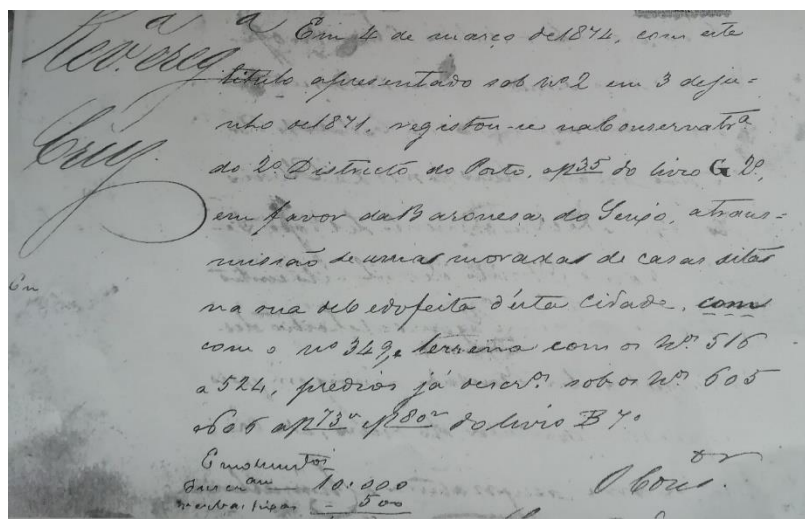 Em 4 de março de 1874, com este
titulo apresentado sob nº 2 em 3 de ju=
nho de 1871, registou-se na Conservatrª
do 2º Districto do Porto, a f 35 do livro G 2º,
em favor da Baronesa do Seixo, a trans=
missão de umas moradas de casas sitas
na rua de Cedofeita d'esta Cidade, com
com o nº 349, e terrena com os Nºs 516
a 524, predios já descrºs sob os Nºs 605
e 606 a f 73vº e f 80vº do livro B 7º
Emolumentos
10:000
500
O Consor.